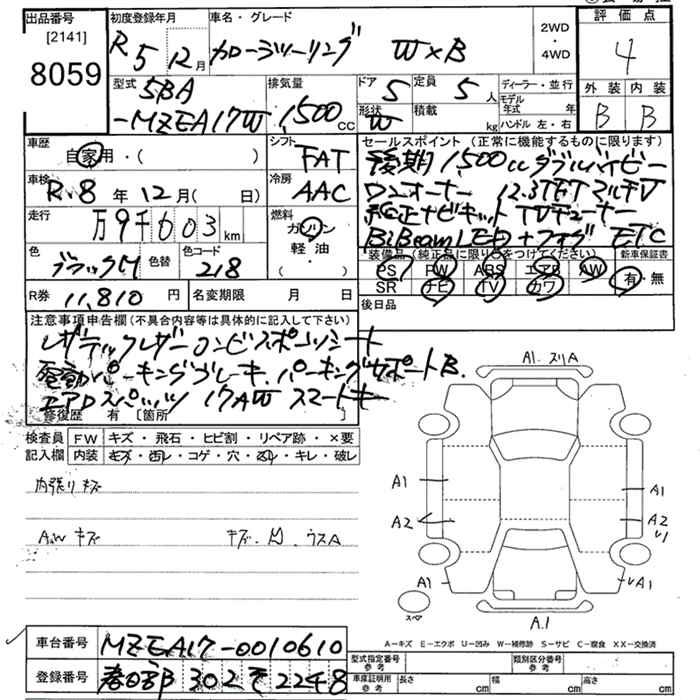 出品番号
[2141]
8059
初度登録年月
R5 12月
車名・グレード
カローラツーリング W×B
2WD
・
4WD
評価点
4
外装 内装
B B
型式
5BA
-MZEA17W
排気量
1,500 cc
ドア 5
定員 5 人
形状 W
積載 kg
ディーラー・並行
モデル年式 年
ハンドル 左・右
車歴
自家用・( )
シフト
FAT
車検
R.8 年 12 月( 日)
冷房
AAC
走行
万9千603 km
燃料
ガソリン
軽・油
( ・ )
色
ブラックM
色替
色コード
218
R券 11,810 円
名変期限 月 日
セールスポイント(正常に機能するものに限ります)
後期 1,500cc ダブルバイビー
Dコーナー 12.3TFTマルチV
純正ナビキット TVチューナー
BiBeam LED+フォグ ETC
装備品(純正品に限り○をつけてください)
新車保証書
PS PW ABS エアB AW
SR ナビ TV カワ
有・無
後日品
注意事項申告欄(不具合内容等は具体的に記入して下さい)
レザテックレザーコンビスポーツシート
電動パーキングブレーキ.パーキングサポートB.
エアロスパッツ 17AW スマートキー
修復歴 有 [箇所 ]
検査員
記入欄
FW キズ・飛石・ヒビ割・リペア跡・×要
内装 キズ・凹レ・コゲ・穴・汚レ・キレ・破レ
内張りキズ
AWキズ キズ.凹.ウスA
A1.スリA
A1
A1
A2
A2
A1
A1
スペア
A.1
A-キズ E-エクボ U-凹み W-補修跡 S-サビ C-腐食 XX-交換済
車台番号
MZEA17-0010610
登録番号
春日部 302 そ 2248
型式指定番号
参考
類別区分番号
参考
車庫証明用
参考
長さ cm
幅 cm
高さ cm